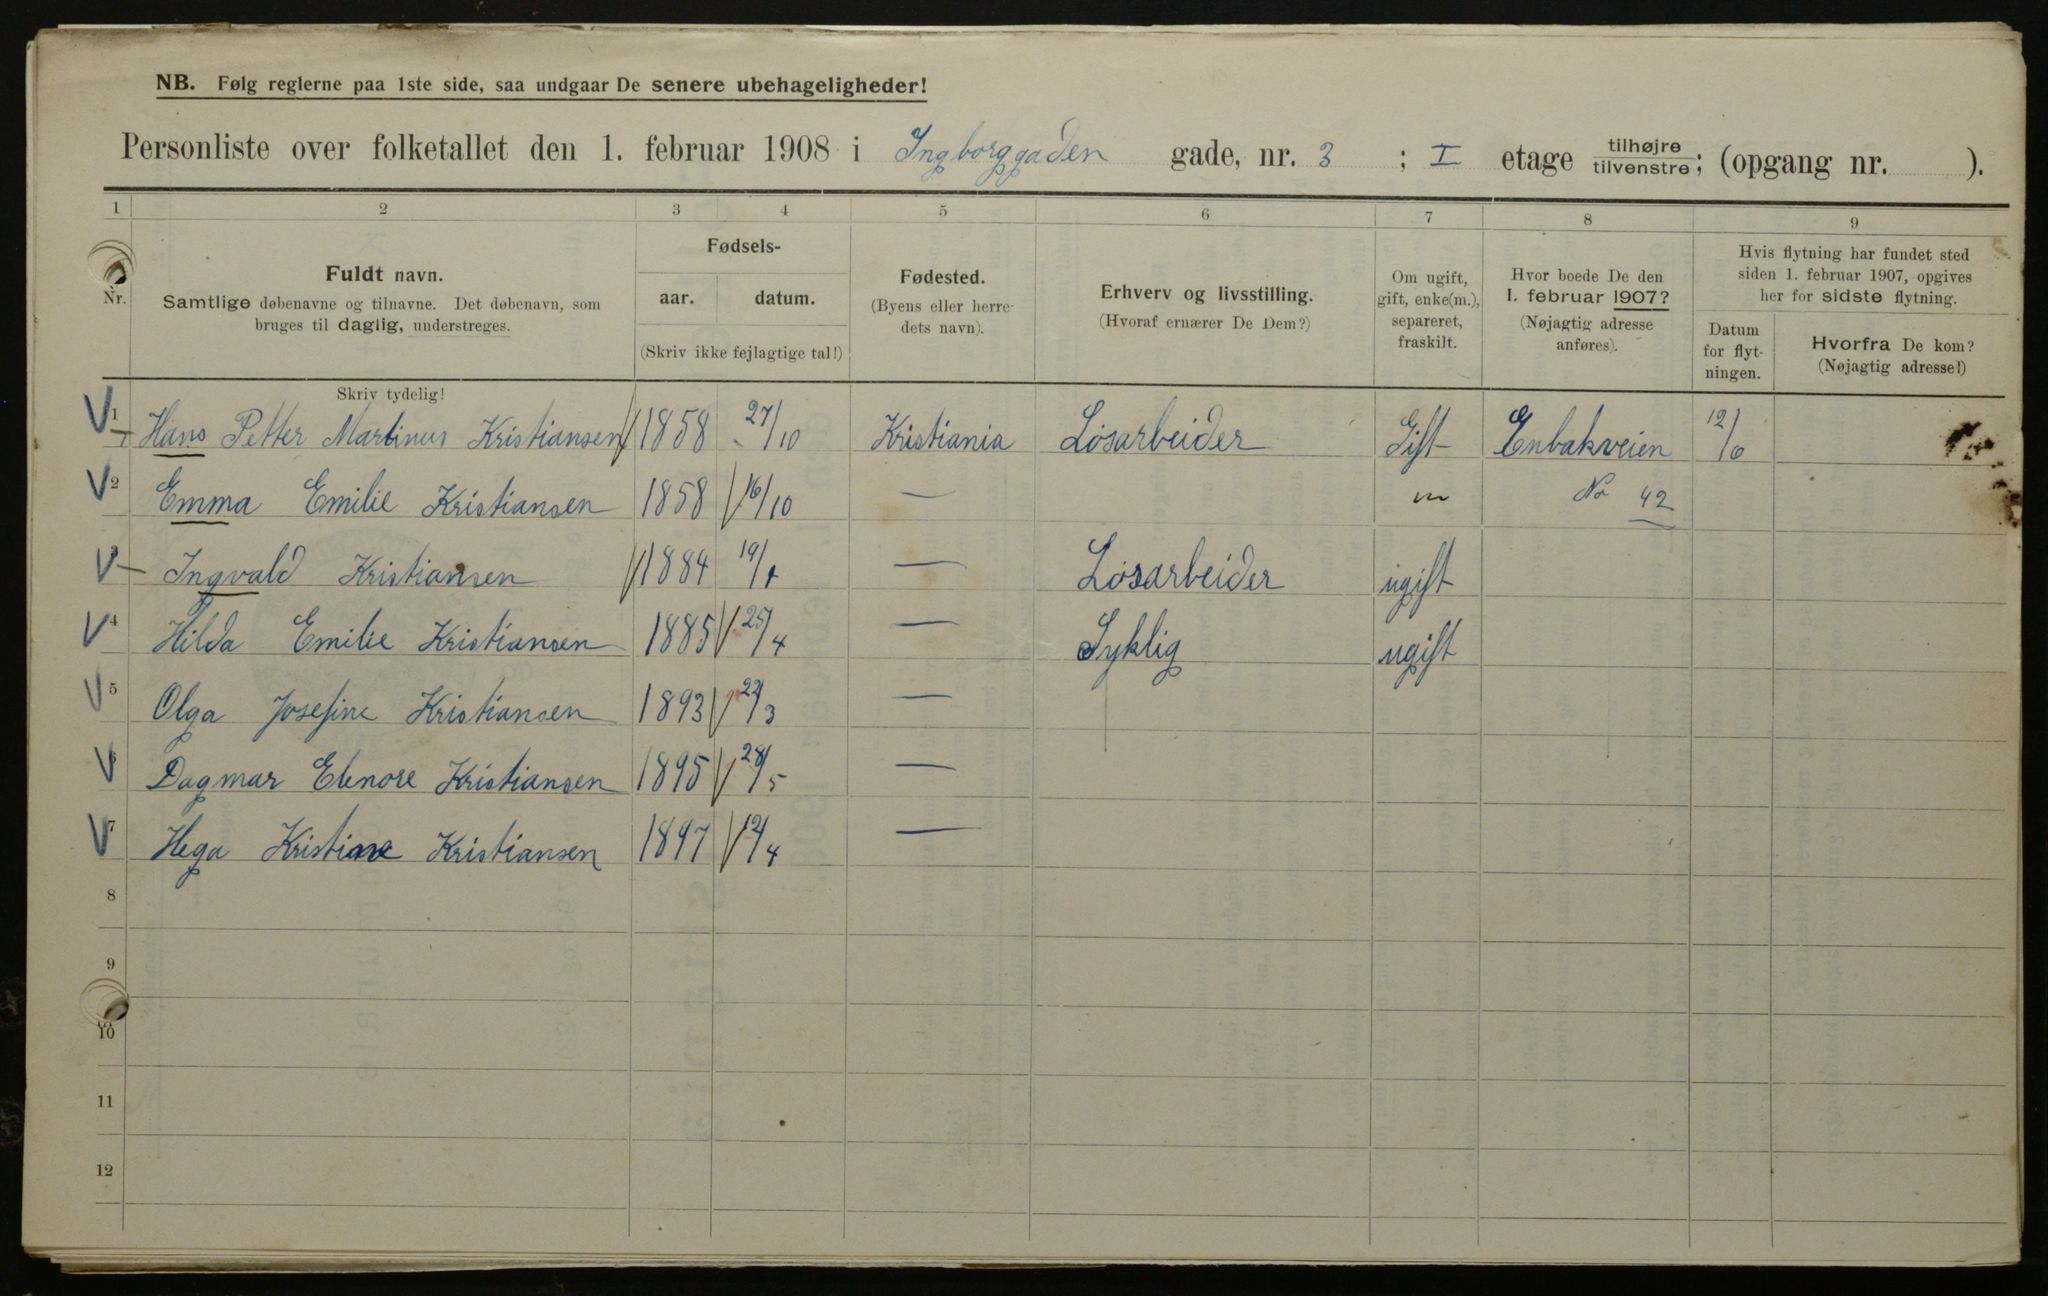 NB. Følg reglerne paa 1ste side, saa undgaar De senere ubehageligheder!
Personliste over folketallet den 1. februar 1908 i Ingborggaden gade, nr. 3 ; I etage tilhøjre/tilvenstre; (opgang nr. ).
1 2 3 4 5 6 7 8 9
Nr.
Fuldt navn.
Samtlige døbenavne og tilnavne. Det døbenavn, som
bruges til daglig, understreges.
Fødsels-
aar. datum.
(Skriv ikke fejlagtige tal!)
Fødested.
(Byens eller herre-
dets navn).
Erhverv og livsstilling.
(Hvoraf ernærer De Dem?)
Om ugift,
gift, enke(m.),
separeret,
fraskilt.
Hvor boede De den
1. februar 1907?
(Nøjagtig adresse
anføres).
Hvis flytning har fundet sted
siden 1. februar 1907, opgives
her for sidste flytning.
Datum
for flyt-
ningen.
Hvorfra De kom?
(Nøjagtig adresse!)
Skriv tydelig!
1 Hans Petter Martinus Kristiansen 1858 27/10 Kristiania Løsarbeider Gift Enbakveien 12/6
2 Emma Emilie Kristiansen 1858 16/10 — " No 42
3 Ingvald Kristiansen 1884 — Løsarbeider ugift
4 Hilda Emilie Kristiansen 1885 25/4 — Syklig ugift
5 Olga Josefine Kristiansen 1893 22/3 —
6 Dagmar Elenore Kristiansen 1895 28/5 —
7 Hega Kristiane Kristiansen 1897 12/4 —
8
9
10
11
12